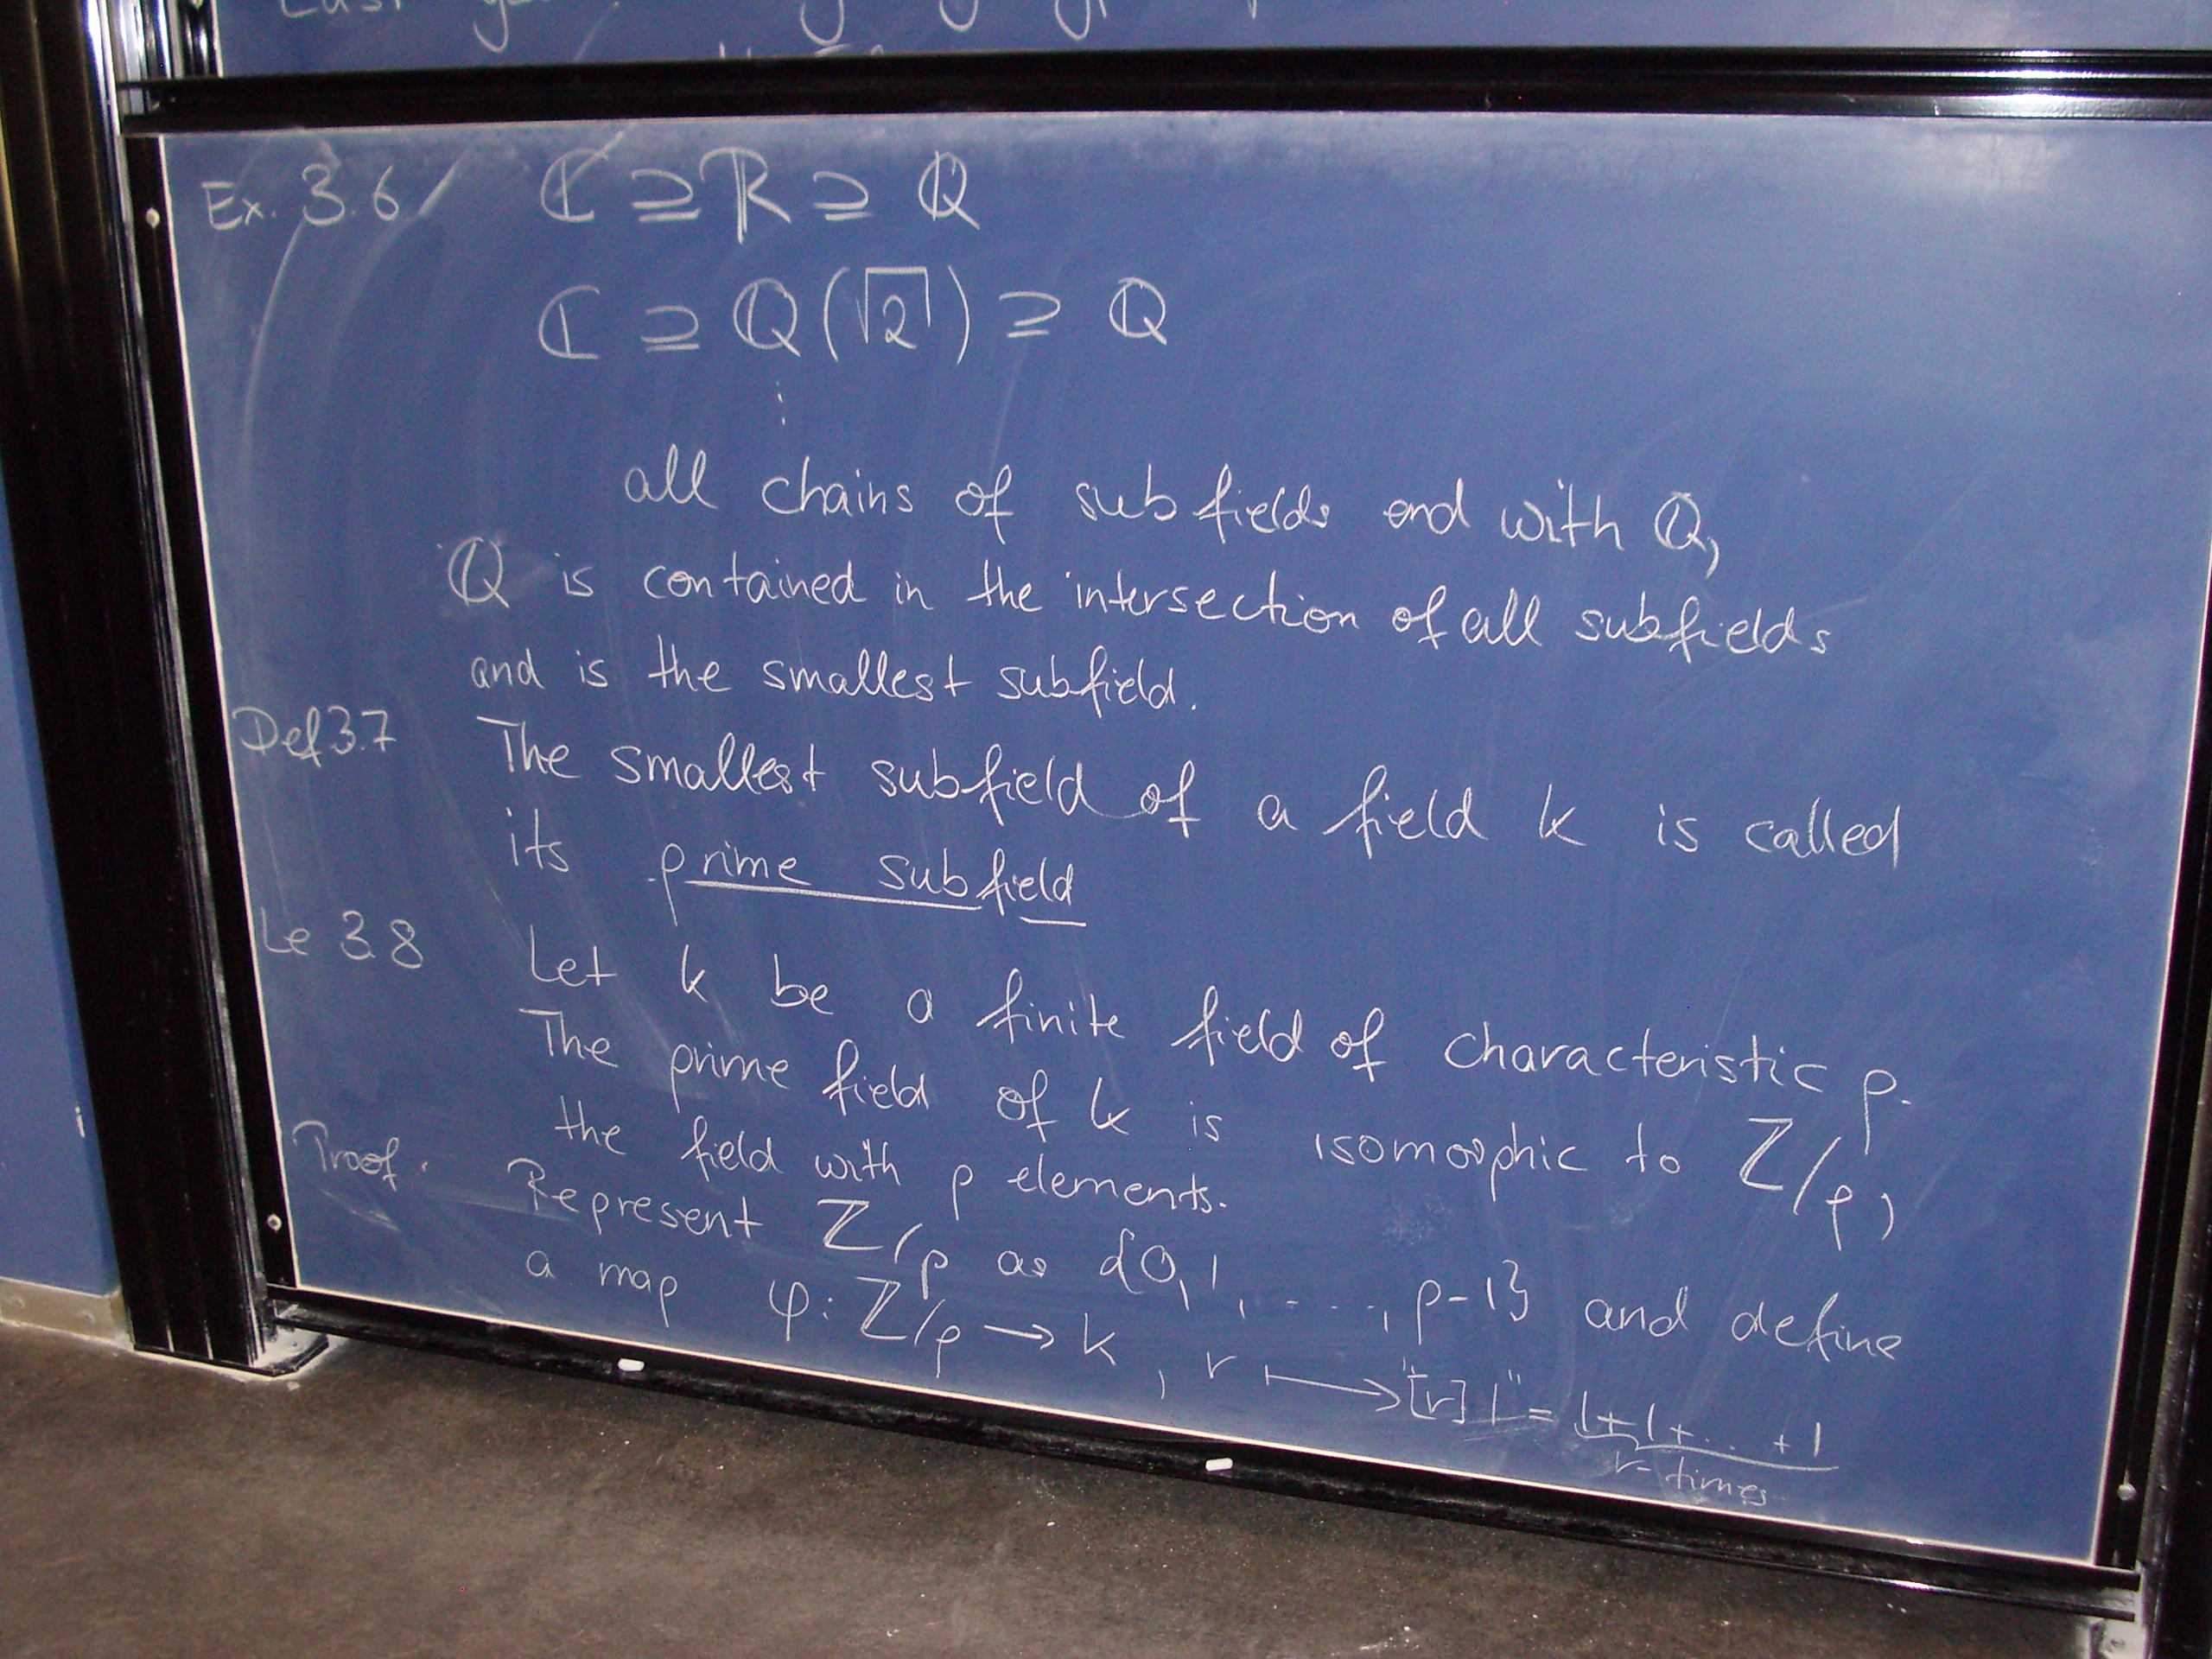 Ex. 3.6/ ℂ ⊇ ℝ ⊇ ℚ
ℂ ⊇ ℚ(√2) ⊇ ℚ
⋮
all chains of subfields end with ℚ,
ℚ is contained in the intersection of all subfields
and is the smallest subfield.
Def 3.7 The smallest subfield of a field k is called
its prime subfield
Le 3.8 Let k be a finite field of characteristic p.
The prime field of k is isomorphic to ℤ/p,
the field with p elements.
Proof. Represent ℤ/p as {0,1,....,p-1} and define
a map φ: ℤ/p → k, r ↦ "[r]1" = 1+1+...+1
r-times